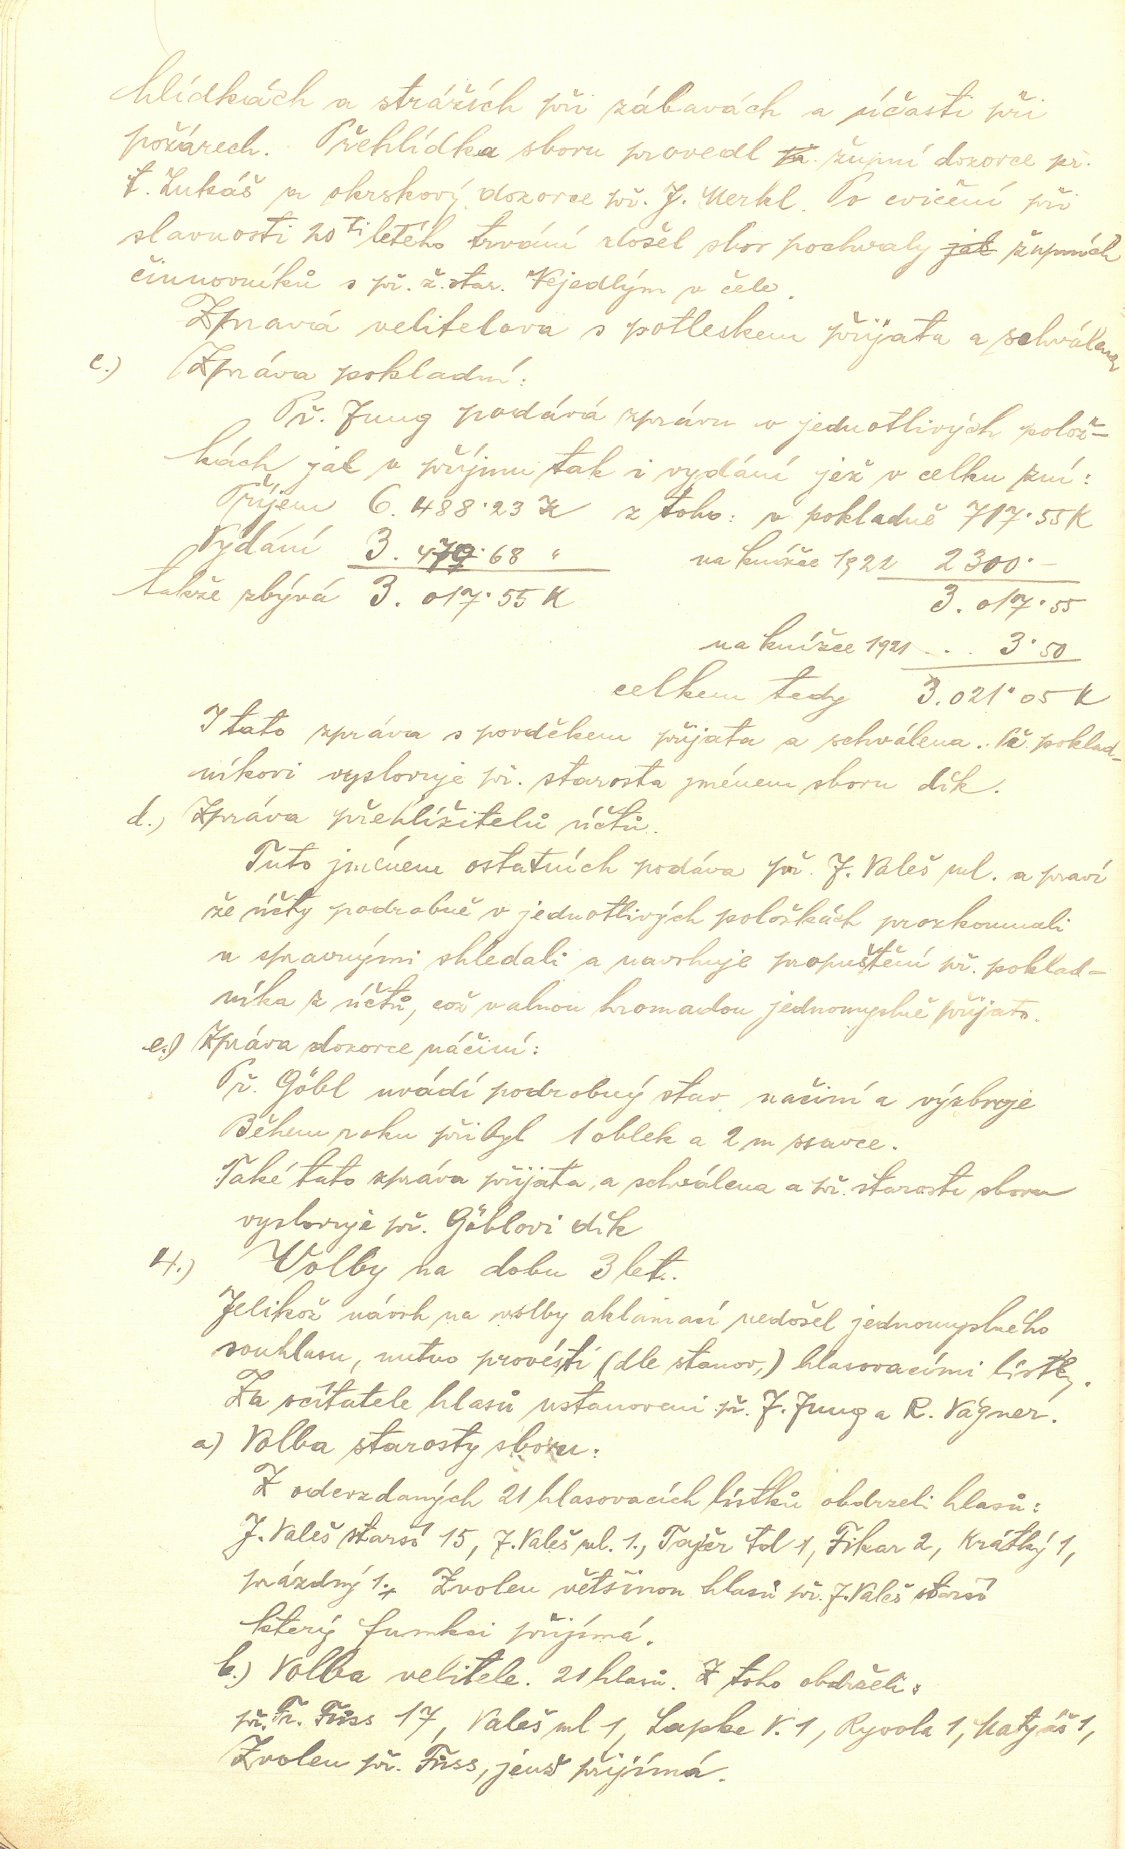 hlídkách a strážích při zábavách a účasti při
požárech. Přehlídku sboru provedl župní dozorce př.
T. Lukáš a okrskový dozorce př. J. Merkl. Po cvičení při
slavnosti 20ti letého trvání došel sbor pochvaly jak župních
činnovníků s př. ž. star. Vejedlým v čele.
Zpravá velitelova s potleskem přijata a schválena
c.) Zpráva pokladní:
Př. Jung podává zprávu v jednotlivých polož-
kách jak v příjmu tak i vydání jež v celku zní:
Příjem 6.488·23 K z toho: v pokladně 717·55 K
Vydání 3.470·68 " na knížce 1921 2300·–
takže zbývá 3.017·55 K 3.017·55
na knížce 1921 ... 3·50
celkem tedy 3.021·05 K
I tato zpráva s povděkem přijata a schválena. Př. poklad-
níkovi vyslovuje př. starosta jménem sboru dík.
d.) Zpráva přehlížitelů účtů.
Tuto jménem ostatních podáva př. J. Valeš ml. a praví
že účty podrobně v jednotlivých položkách prozkoumali
a spravnými shledali a navrhuje propuštění př. poklad-
níka z účtů, což valnou hromadou jednomyslně přijato.
e.) Zpráva dozorce náčiní:
Př. Göbl uvádí podrobný stav načiní a výzbroje
Během roku přibyl 1 oblek a 2 m ssavce.
Také tato zpráva přijata a schválena a př. starosta sboru
vyslovuje př. Göblovi dík
4.) Volby na dobu 3 let.
Jelikož návrh na volby aklamací nedošel jednomyslného
souhlasu, nutno provésti (dle stanov,) hlasovacími lístky.
Za sčítatele hlasů ustanoveni př. J. Jung a R. Vágner.
a) Volba starosty sboru:
Z odevzdaných 21 hlasovacích lístků obdrželi hlasů:
J. Valeš starší 15, J. Valeš ml. 1., Tajčr tol 1, Fikar 2, Krátký 1,
prázdný 1. Zvolen většinou hlasů př. J. Valeš starší
který funkci přijímá.
b.) Volba velitele. 21 hlasů. Z toho obdrželi:
př. Fr. Füss 17, Valeš ml 1, Lapke V. 1, Ryvola 1, Matyáš 1,
Zvolen př. Füss, jenž přijímá.